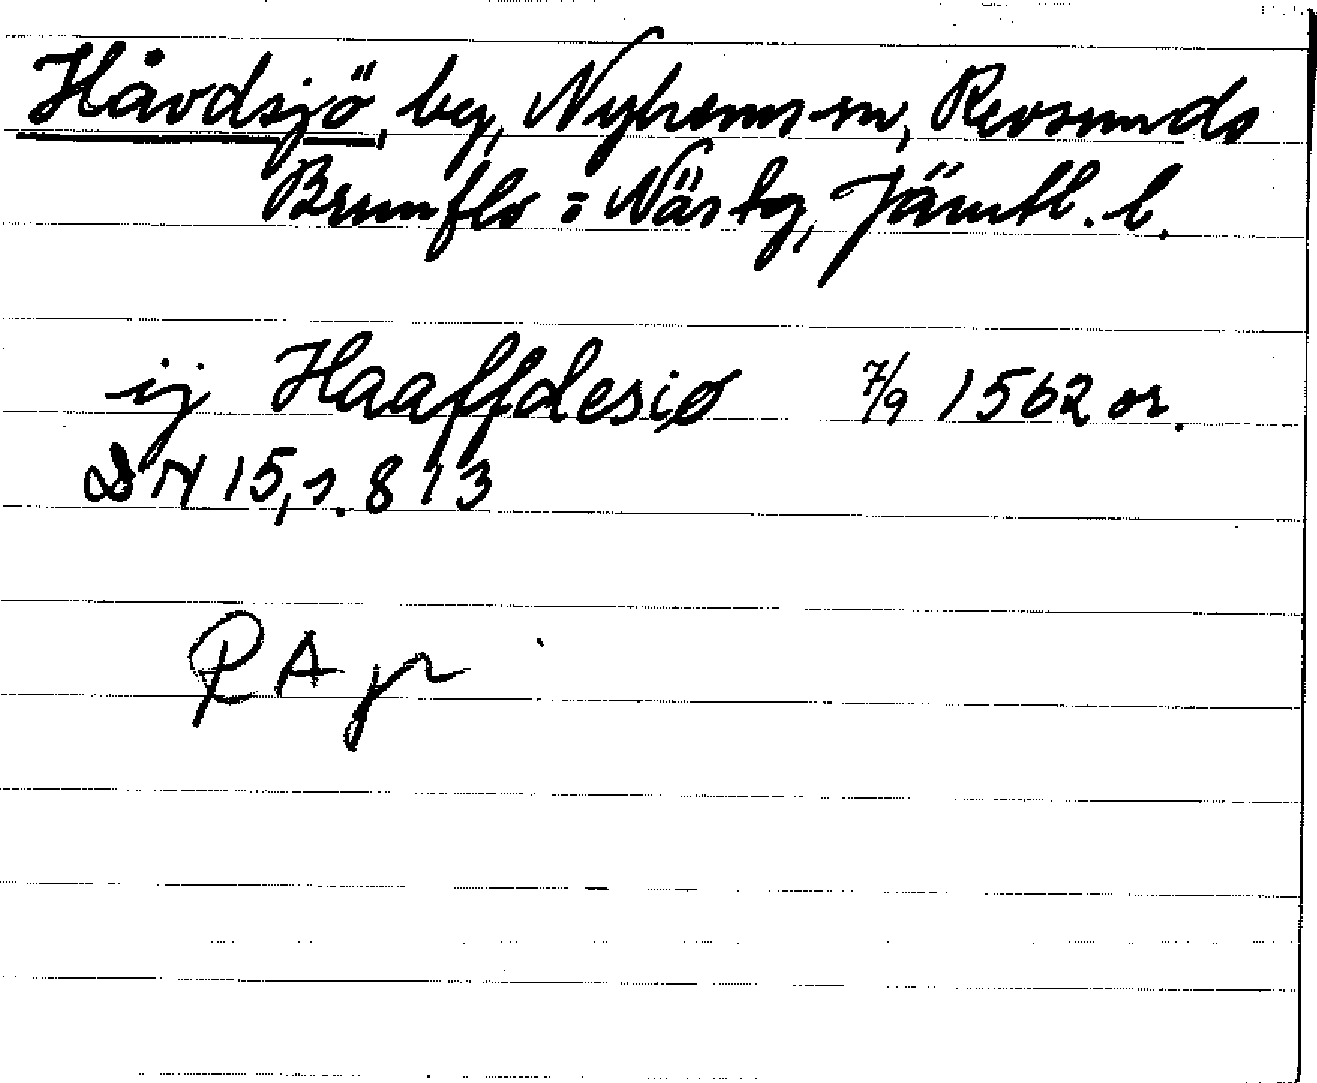 Håvdsjö, by, Nyhems sn, Revsunds
Brunflo o Näs tg, Jämtl. l.
ij Haaffdesiø 7/9 1562 or.
DN 15, s. 813
RA